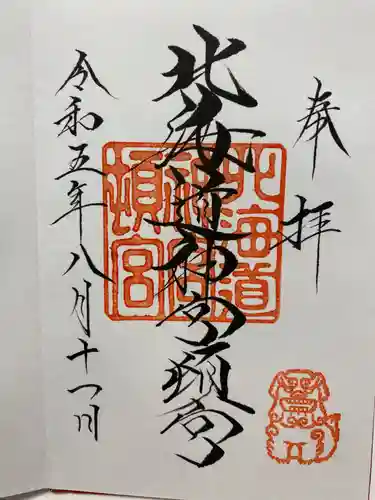 奉拝
北海道神宮頓宮
北海道神宮頓宮
令和五年八月十一日